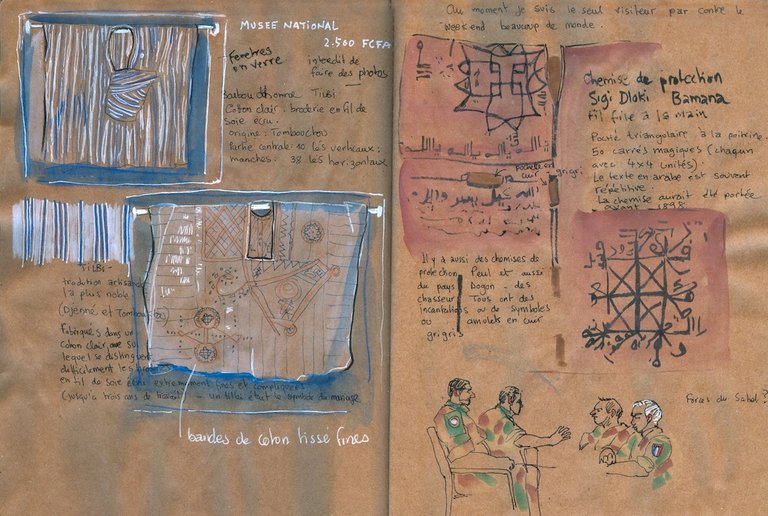 MUSEE NATIONAL
2.500 FCFA
Fenêtres
en verre
interdit de
faire des photos
boubou d'homme Tilbi
Coton clair. broderie en fil de
soie écru.
origine: Tombouctou
Partie centrale: 10 lés verticaux;
manches: 38 lés horizontaux
TILBI -
tradition artisanale
la plus noble
(Djenné et Tombouctou)
Fabriqués dans un
coton clair, sur
lequel se distinguent
difficilement les
en fil de soie écru extrêmement fines et compliquées
(jusqu'à trois ans de travail) - un tilbi était le symbole du mariage
bandes de coton tissé fines
Au moment je suis le seul visiteur par contre le
week-end beaucoup de monde.
Chemise de protection
Sigi Dloki Bamana
Fil filé à la main
Poche triangulaire à la poitrine.
50 carrés magiques (chacun
avec 4x4 unités).
Le texte en arabe est souvent
répétitive.
La chemise aurait été portée
avant 1898
pochette en
cuir
grigri
Il y a aussi des chemises de
protection Peul et aussi
du pays Dogon - des
chasseur Tous ont des
incantations ou de symboles
ou amulets en cuir
grigris
Forces du Sahel?